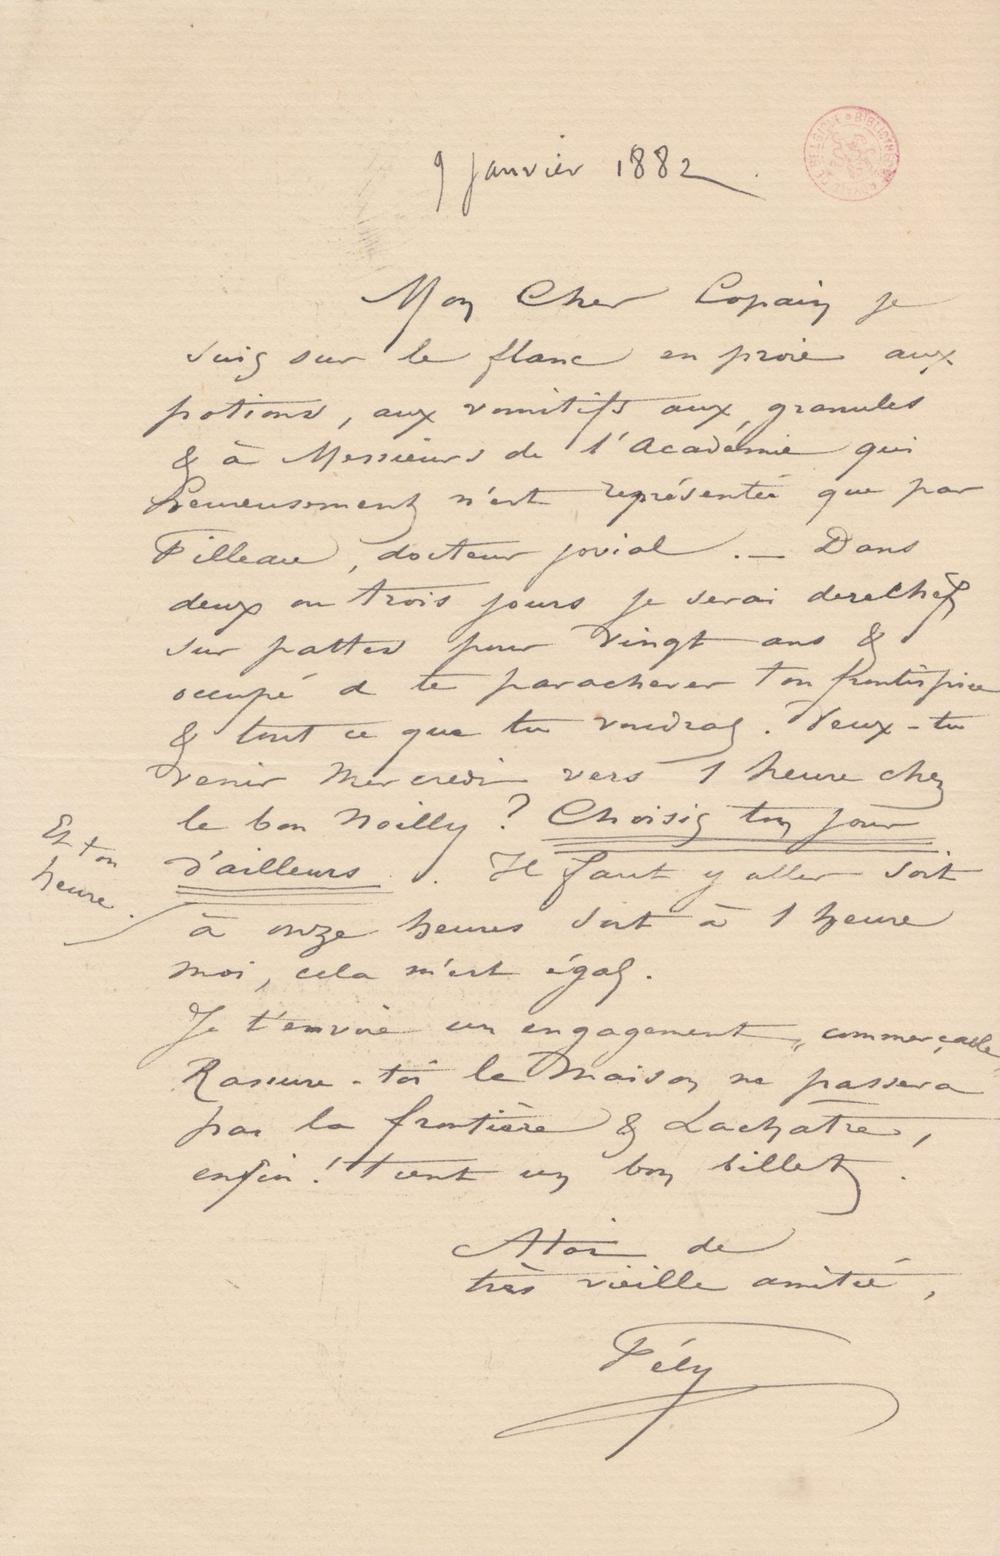 9 janvier 1882
Mon Cher Copain je
suis sur le flanc en proie aux
potions, aux vomitifs aux granules
& à Messieurs de l'Académie qui
heureusement n'est représentée que par
Filleau, docteur jovial. — Dans
deux ou trois jours je serai derechef
sur pattes pour vingt ans &
occupé à te parachever ton frontispice
& tout ce que tu voudras. Veux-tu
venir Mercredi vers 1 heure chez
le bon Noilly ? Choisis ton jour
d'ailleurs. Il faut y aller soit
Et ton
heure.
à onze heures soit à 1 heure
moi, cela m'est égal.
Je t'envoie un engagement,
Rassure-toi la Maison ne passera
pas la frontière & Lachatre,
enfin ! tient un bon billet.
A toi de
très vieille amitié,
Fély